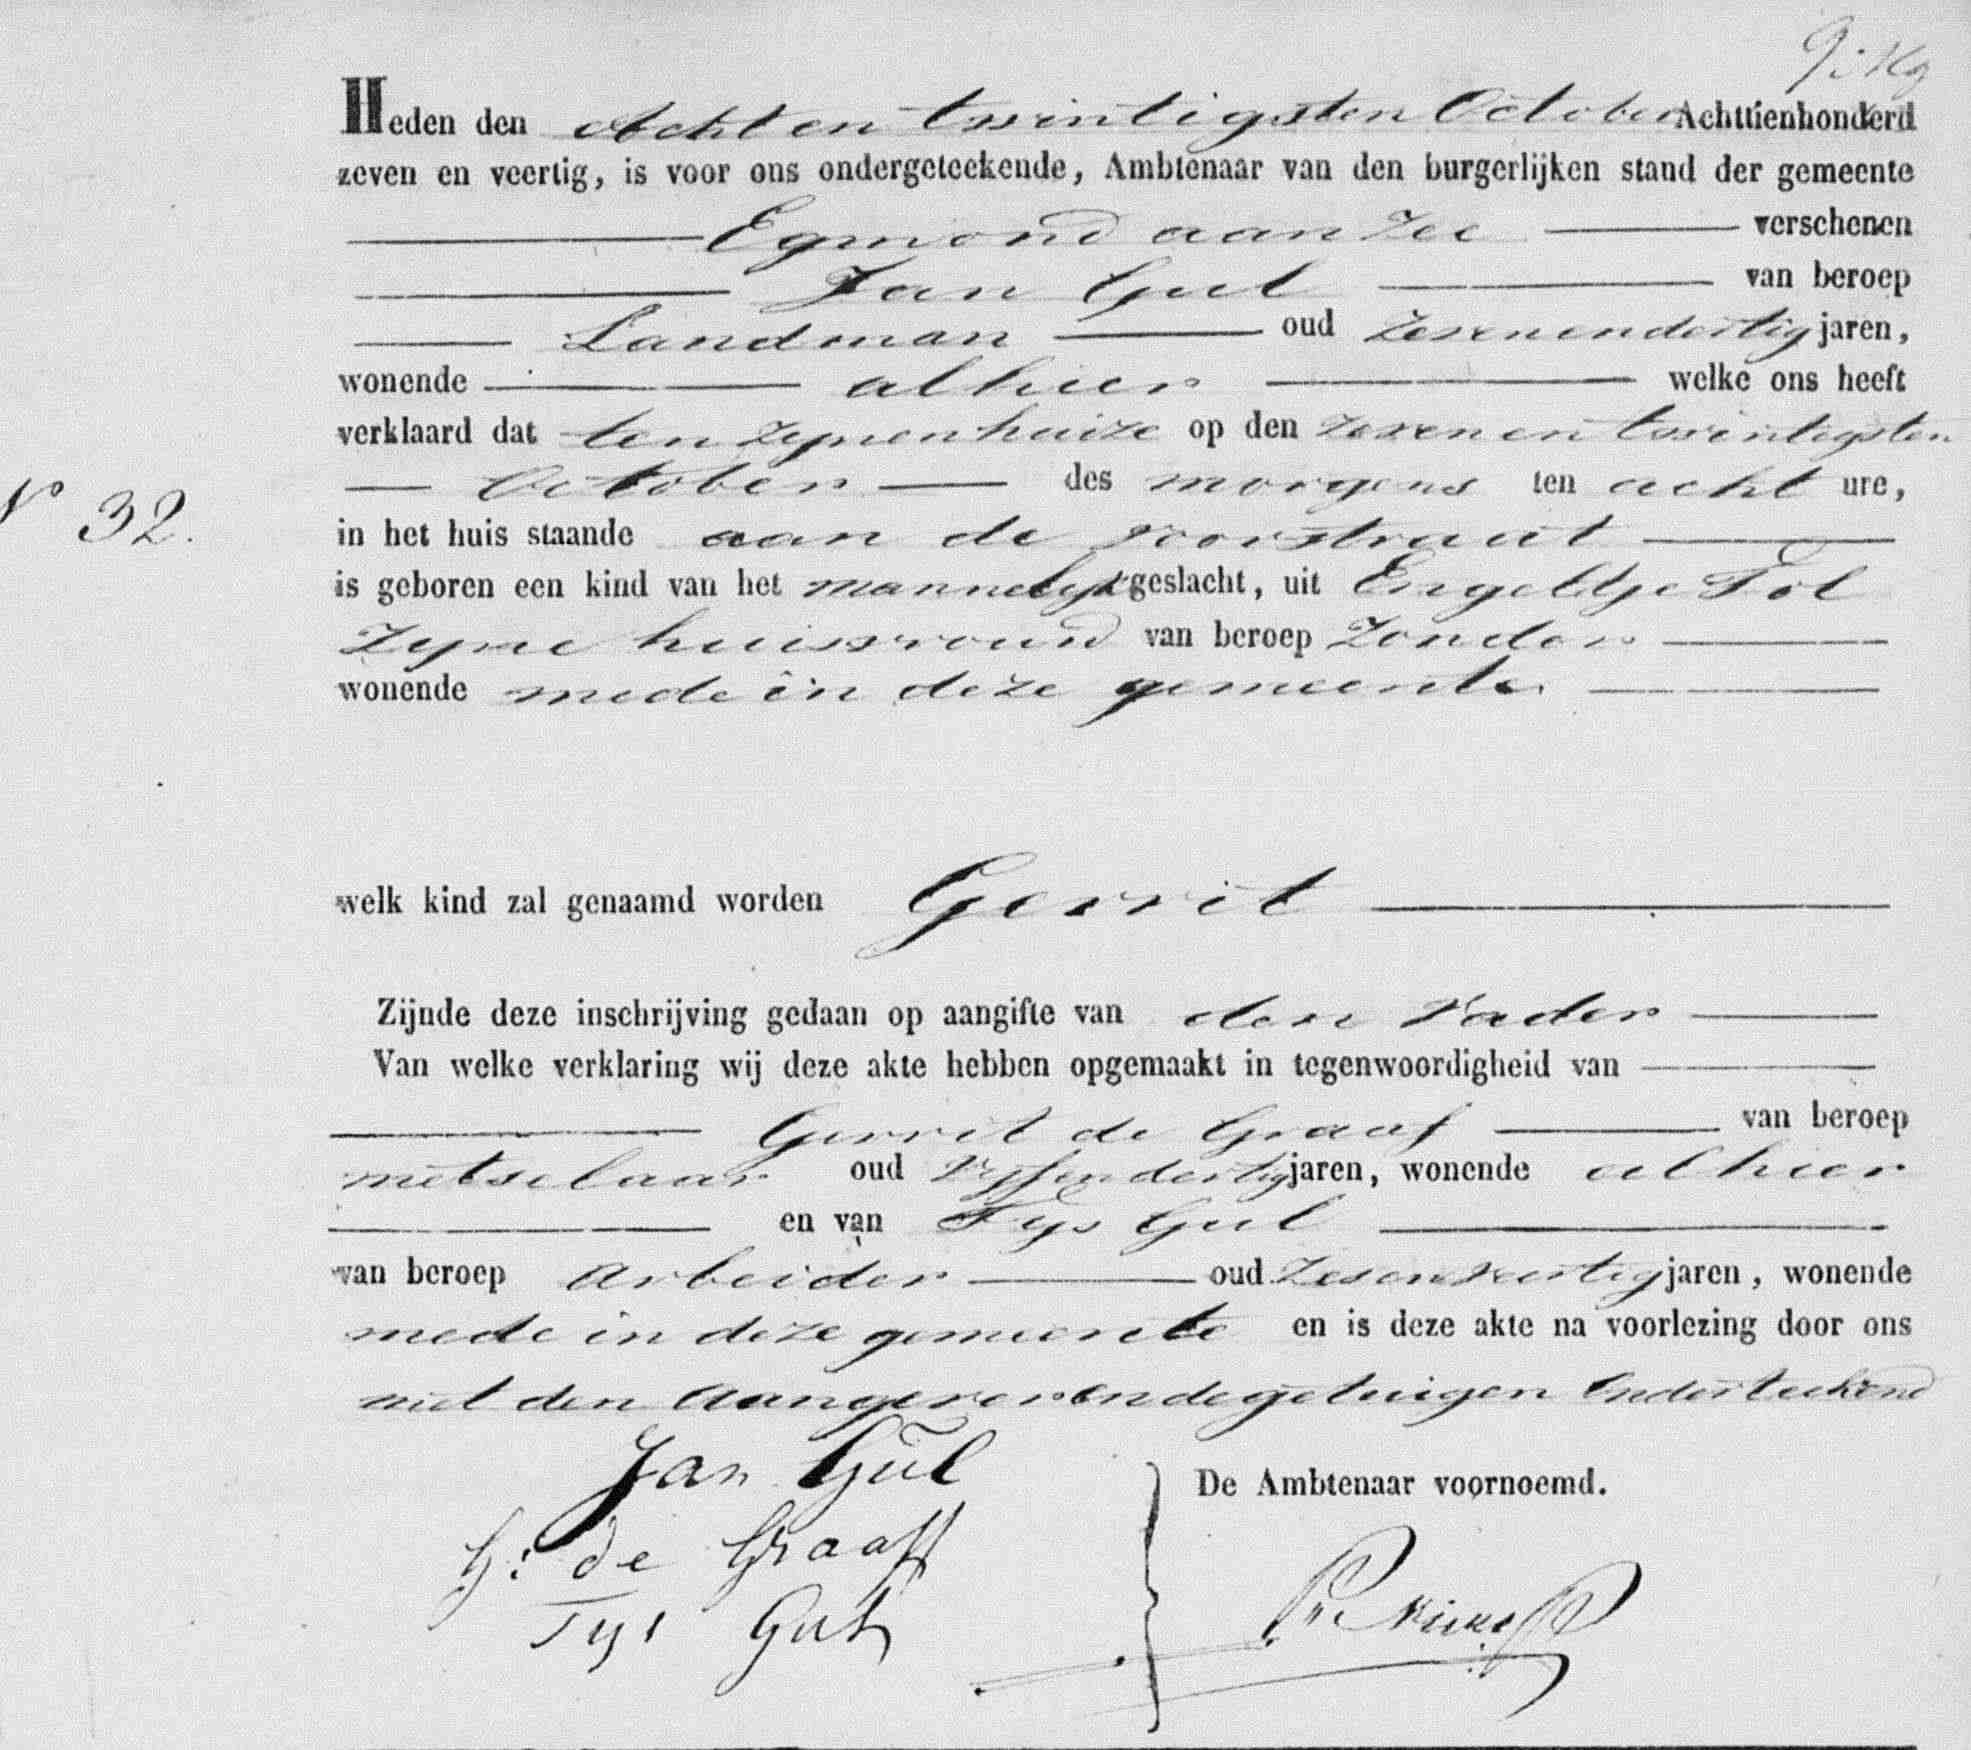 Heden den Acht en twintigsten October Achttienhonderd
zeven en veertig, is voor ons ondergeteekende, Ambtenaar van den burgerlijken stand der gemeente
Egmond aan Zee verschenen
Jan Gul van beroep
Landman oud zevenendertig jaren,
wonende alhier welke ons heeft
verklaard dat ten zynen huize op den zevenentwintigsten
October des morgens ten acht ure,
N° 32.
in het huis staande aan de voorstraat
is geboren een kind van het mannelyk geslacht, uit Engeltje Tol
zyne huisvrouw van beroep zonder
wonende mede in deze gemeente
welk kind zal genaamd worden Gerrit
Zijnde deze inschrijving gedaan op aangifte van den Vader
Van welke verklaring wij deze akte hebben opgemaakt in tegenwoordigheid van
Gerrit de Graaf van beroep
metselaar oud Vyfendertig jaren, wonende alhier
en van Tys Gul
van beroep Arbeider oud Zesenveertig jaren, wonende
mede in deze gemeente en is deze akte na voorlezing door ons
met den Aangever en de getuigen Onderteekend
Jan Gul
De Ambtenaar voornoemd.
G: de Graaff
Tys Gul